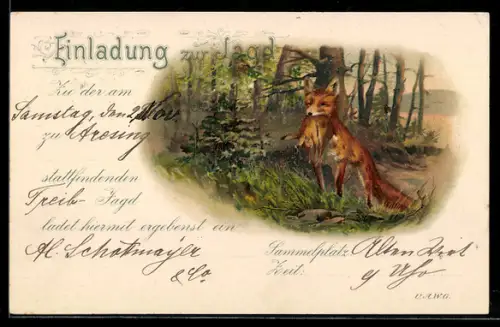 Einladung zur Jagd
Zu der am
Samstag, den 2. Nov
zu Aresing
stattfindenden
Treib- Jagd
ladet hiermit ergebenst ein
Al. Schotmayer
& Co
Sammelplatz Alten
Zeit: 9 Uhr
U.A.W.G.